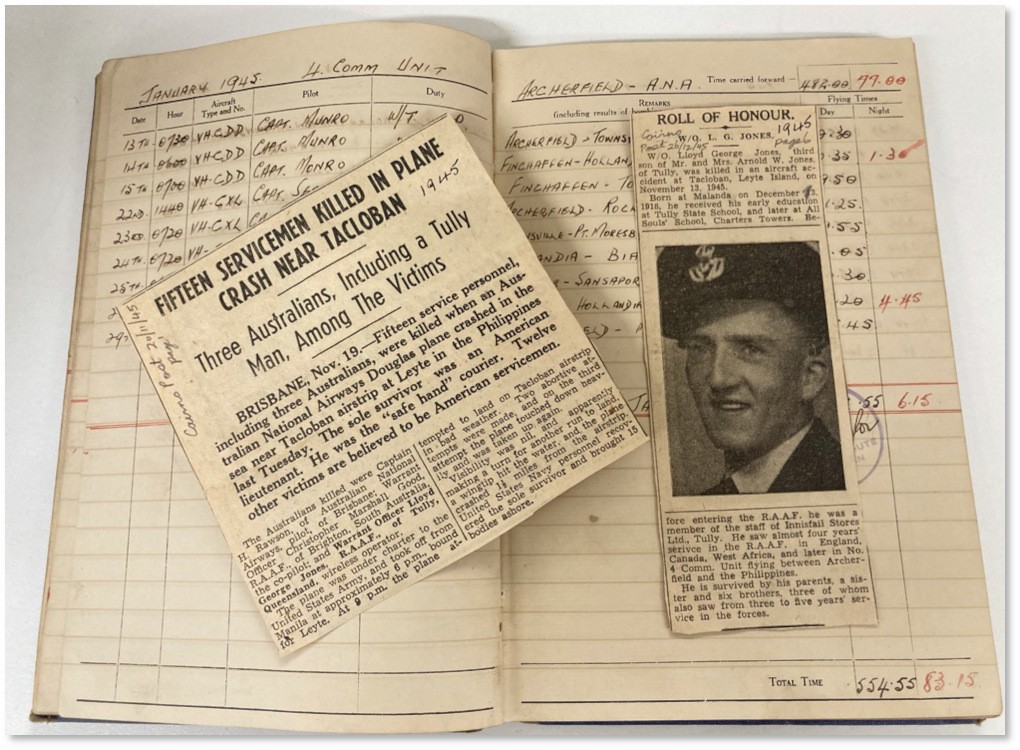 JANUARY 1945. 4. COMM UNIT
Date Hour Aircraft Type and No. Pilot Duty
13TH 0730 VH-CDD CAPT. MUNRO W/T
14TH 0600 VH-CDD CAPT. MUNRO
15TH 0700 VH-CDD CAPT. MONRO
22ND. 1440 VH-CXL
23RD. 0720 VH-CXL
24TH. 0720 VH-
25TH.
FIFTEEN SERVICEMEN KILLED IN PLANE
CRASH NEAR TACLOBAN
1945
Three Australians, Including a Tully
Man, Among The Victims
Cairns Post 20/11/45
page
BRISBANE, Nov. 19.—Fifteen service personnel,
including three Australians, were killed when an Aus-
tralian National Airways Douglas plane crashed in the
sea near Tacloban airstrip at Leyte in the Philippines
last Tuesday. The sole survivor was an American
lieutenant. He was the "safe hand" courier. Twelve
other victims are believed to be American servicemen.
The Australians killed were Captain
H. Rawson, of Australian National
Airways, pilot, of Brisbane; Warrant
Officer Christopher Marshall Good,
R.A.A.F., of Brighton, South Australia,
the co-pilot; and Warrant Officer Lloyd
George Jones, R.A.A.F., of Tully,
Queensland, wireless operator.
The plane was under charter to the
United States Army, and took off from
Manila at approximately 6 p.m., bound
for Leyte. At 9 p.m. the plane at-
tempted to land on Tacloban airstrip
in bad weather. Two abortive at-
tempts were made, and on the third
attempt the plane touched down heav-
ily and was taken up again.
Visibility was nil, and apparently
making a turn for another run to land,
a wingtip hit the water, and the plane
crashed 1½ miles from the airstrip.
United States Navy personnel recov-
ered the sole survivor and brought 15
bodies ashore.
ARCHERFIELD - A.N.A. Time carried forward — 482.00 77.00
REMARKS Flying Times
(including results of Day Night
ARCHERFIELD - TOWNS
FINCHAFFEN - HOLLAN .35 1.30
FINCHAFFEN - TO 9.50
ARCHERFIELD - ROCK .25
NSVILLE - PT. MORESB .55
LANDIA - BIA .05
- SANSAPOR .30
HOLLANDIA .20 4.45
ELD - .45
55 6.15
TOTAL TIME 554.55 83.15
ROLL OF HONOUR.
Cairns
Post 20/12/45
1945
page 6
W/O. L. G. JONES.
W/O. Lloyd George Jones, third
son of Mr. and Mrs. Arnold W. Jones,
of Tully, was killed in an aircraft ac-
cident at Tacloban, Leyte Island, on
November 13, 1945.
Born at Malanda on December 13,
1918, he received his early education
at Tully State School, and later at All
Souls' School, Charters Towers. Be-
fore entering the R.A.A.F. he was a
member of the staff of Innisfail Stores
Ltd., Tully. He saw almost four years'
serivce in the R.A.A.F. in England,
Canada, West Africa, and later in No.
4 Comm. Unit flying between Archer-
field and the Philippines.
He is survived by his parents, a sis-
ter and six brothers, three of whom
also saw from three to five years' ser-
vice in the forces.